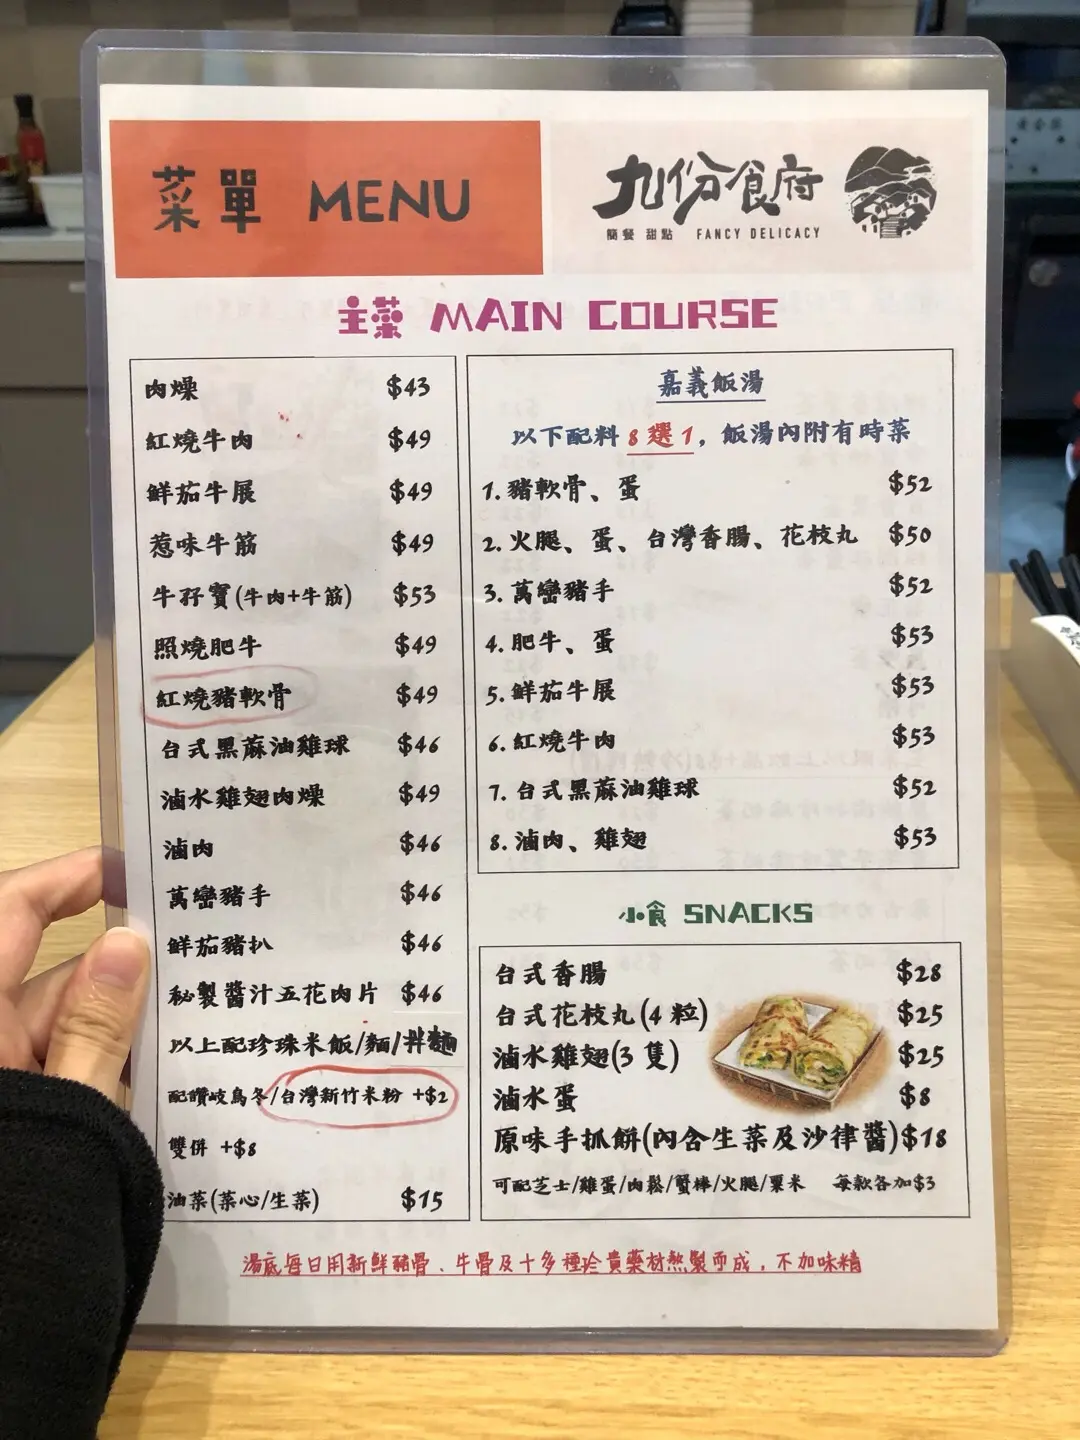 菜單 MENU
九份食府
簡餐 甜點 FANCY DELICACY
主菜 MAIN COURSE
肉燥 $43
紅燒牛肉 $49
鮮茄牛展 $49
惹味牛筋 $49
牛孖寶(牛肉+牛筋) $53
照燒肥牛 $49
紅燒豬軟骨 $49
台式黑蔴油雞球 $46
滷水雞翅肉燥 $49
滷肉 $46
萬巒豬手 $46
鮮茄豬扒 $46
秘製醬汁五花肉片 $46
以上配珍珠米飯/麵/拌麵
配讚岐烏冬/台灣新竹米粉 +$2
雙併 +$8
油菜(菜心/生菜) $15
嘉義飯湯
以下配料8選1，飯湯內附有時菜
1. 豬軟骨、蛋 $52
2. 火腿、蛋、台灣香腸、花枝丸 $50
3. 萬巒豬手 $52
4. 肥牛、蛋 $53
5. 鮮茄牛展 $53
6. 紅燒牛肉 $53
7. 台式黑蔴油雞球 $52
8. 滷肉、雞翅 $53
小食 SNACKS
台式香腸 $28
台式花枝丸(4粒) $25
滷水雞翅(3隻) $25
滷水蛋 $8
原味手抓餅(內含生菜及沙律醬) $18
可配芝士/雞蛋/肉鬆/蟹棒/火腿/粟米 每款各加$3
湯底每日用新鮮豬骨、牛骨及十多種珍貴藥材熬製而成，不加味精